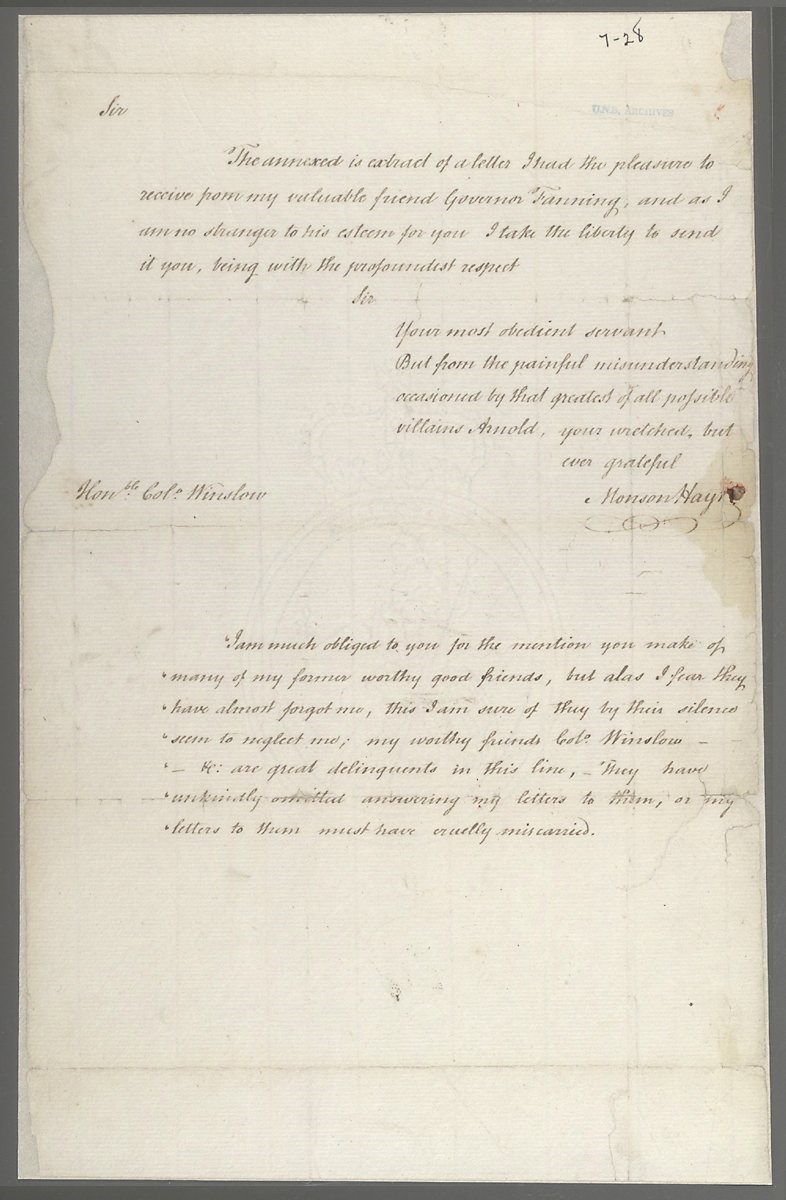 7-28
Sir
U.N.B. ARCHIVES
The annexed is extract of a letter I had the pleasure to
receive from my valuable friend Governor Fanning, and as I
am no stranger to his esteem for you I take the liberty to send
it you, being with the profoundest respect
Sir
Your most obedient servant
But from the painful misunderstanding
occasioned by that greatest of all possible
villains Arnold, your wretched, but
ever grateful
Honble. Colo. Winslow
Monson Hayt
"I am much obliged to you for the mention you make of
"many of my former worthy good friends, but alas I fear they
"have almost forgot me, this I am sure of they by their silence
"seem to neglect me; my worthy friends Colo. Winslow –
"– &c: are great delinquents in this line, – They have
"unkindly omitted answering my letters to them, or my
"letters to them must have cruelly miscarried.